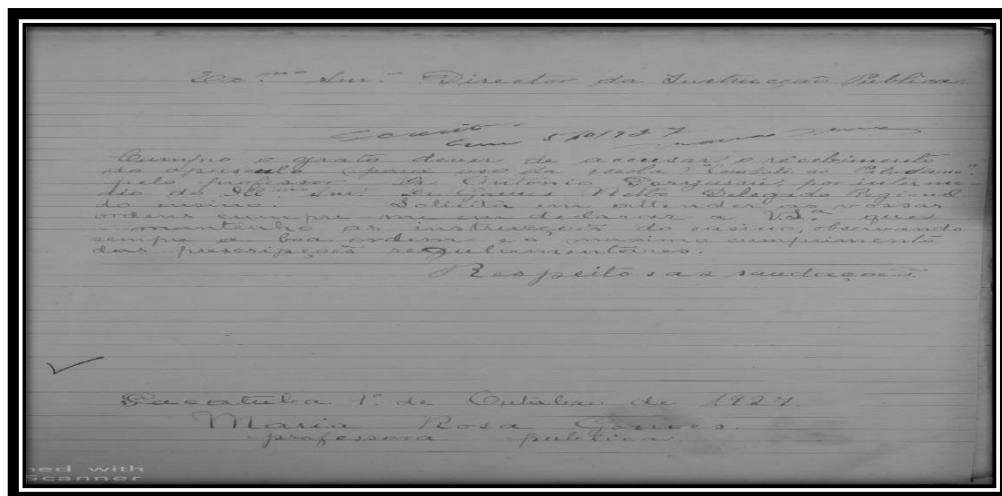 Ex.mo Snr.or Director da Instrucção Publica
5/10/927
Cumpro o grato dever de accusar o recebimento
do opusculo para uso da escola, "Combate ao Paludismo"
pelo professor Dr. Antonio por interme-
dio do Snr. Netto Delegado Regional
do ensino. Solicita em attender as vossas
ordens cumpre-me em declarar a V.S.ª que
mantenho as instrucções do ensino, observando
sempre a boa ordem e o maximo cumprimento
das prescripções regulamentares.
Respeitosas saudações.
1º. de Outubro de 1927.
Maria Rosa Gomes.
professora publica
ned with
Scanner